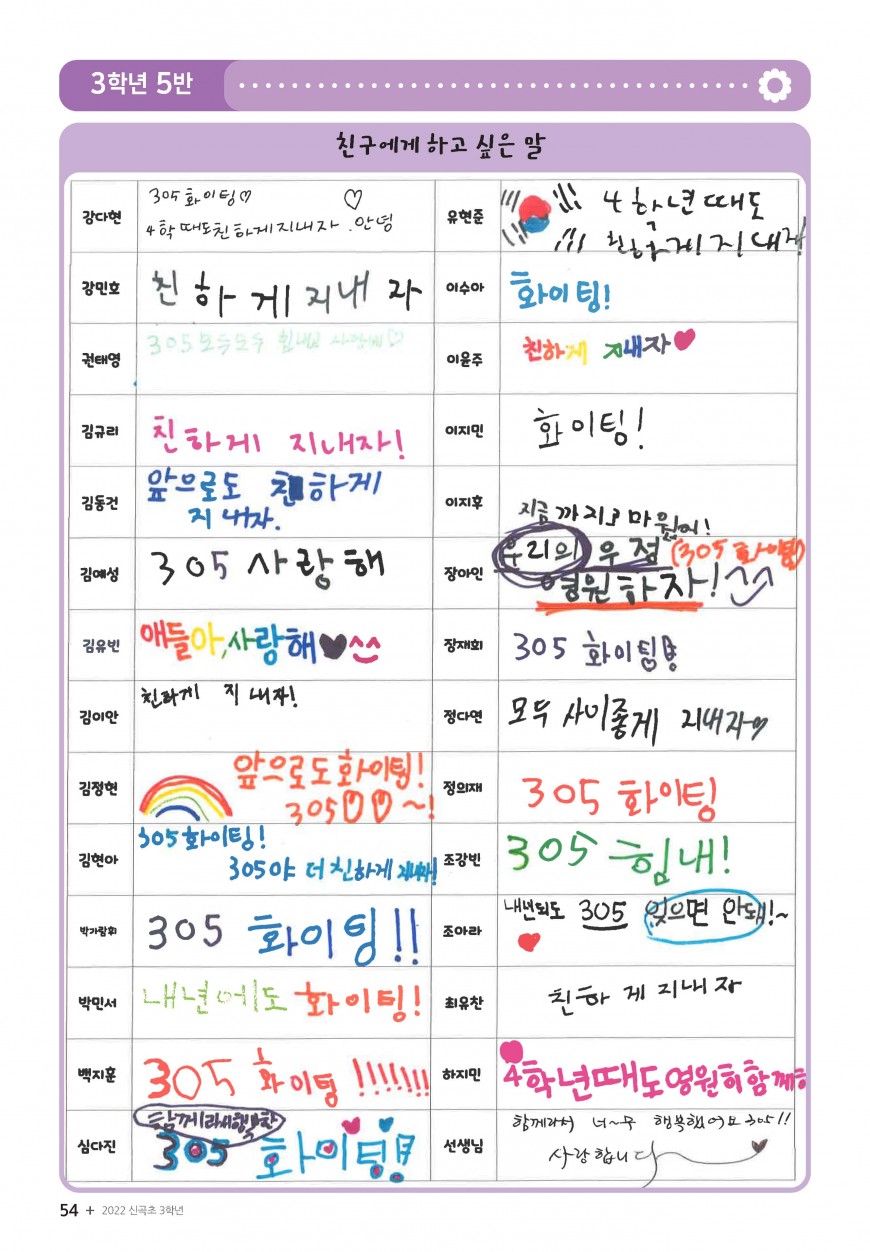 3학년 5반
친구에게 하고 싶은 말
강다현
305 화이팅♡
4학때도친하게지내자.안녕
강민호
친하게지내자
권태영
305모두모두 힘내고 사랑해♡
김규리
친하게 지내자!
김동건
앞으로도 친하게
지내자.
김예성
305 사랑해
김유빈
애들아,사랑해♥^^
김이안
친하게 지내자!
김정현
앞으로도화이팅!
305♡♡~!
김현아
305화이팅!
305야 더친하게 지내자!
박가람휘
305 화이팅!!
박민서
내년에도 화이팅!
백지훈
305 화이팅!!!!!!!
심다진
함께라서행복한
305 화이팅!
유현준
4학년때도
친하게지내자!
이수아
화이팅!
이윤주
친하게 지내자♥
이지민
화이팅!
이지후
지금까지고마웠어!
장아인
우리의 우정 (305 화이팅)
영원하자!^^
장재희
305 화이팅!
정다연
모두 사이좋게 지내자♡
정의재
305 화이팅
조강빈
305 힘내!
조아라
내년되도 305 잊으면 안돼!~
최유찬
친하게지내자
하지민
4학년때도영원히함께해
선생님
함께라서 너~무 행복했어요 305!!
사랑합니다
54 + 2022 신곡초 3학년